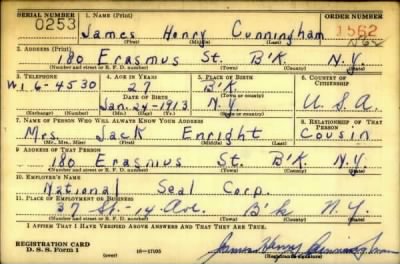 SERIAL NUMBER 1. NAME (Print) ORDER NUMBER
0253 James Henry Cunningham 1562
(First) (Middle) (Last)
2. ADDRESS (Print)
180 Erasmus St. B'K. N.Y.
(Number and street or R. F. D. number) (Town) (County) (State)
3. TELEPHONE 4. AGE IN YEARS 5. PLACE OF BIRTH 6. COUNTRY OF CITIZENSHIP
WI 6-4530 27 B'K.
DATE OF BIRTH (Town or county)
Jan. 24-1913 N.Y U.S.A.
(Mo.) (Day) (Yr.) (State or country)
7. NAME OF PERSON WHO WILL ALWAYS KNOW YOUR ADDRESS 8. RELATIONSHIP OF THAT PERSON
Mrs. Jack Enright Cousin
(Mr., Mrs., Miss) (First) (Middle) (Last)
9. ADDRESS OF THAT PERSON
180 Erasmus St. B'K. N.Y.
(Number and street or R. F. D. number) (Town) (County) (State)
10. EMPLOYER'S NAME
National Seal Corp.
11. PLACE OF EMPLOYMENT OR BUSINESS
37 St.-14 Ave. B'k N.Y.
(Number and street or R. F. D. number) (Town) (County) (State)
I AFFIRM THAT I HAVE VERIFIED ABOVE ANSWERS AND THAT THEY ARE TRUE.
REGISTRATION CARD
D. S. S. Form 1 (over) 16-17105 James Henry Cunningham
(Registrant's signature)